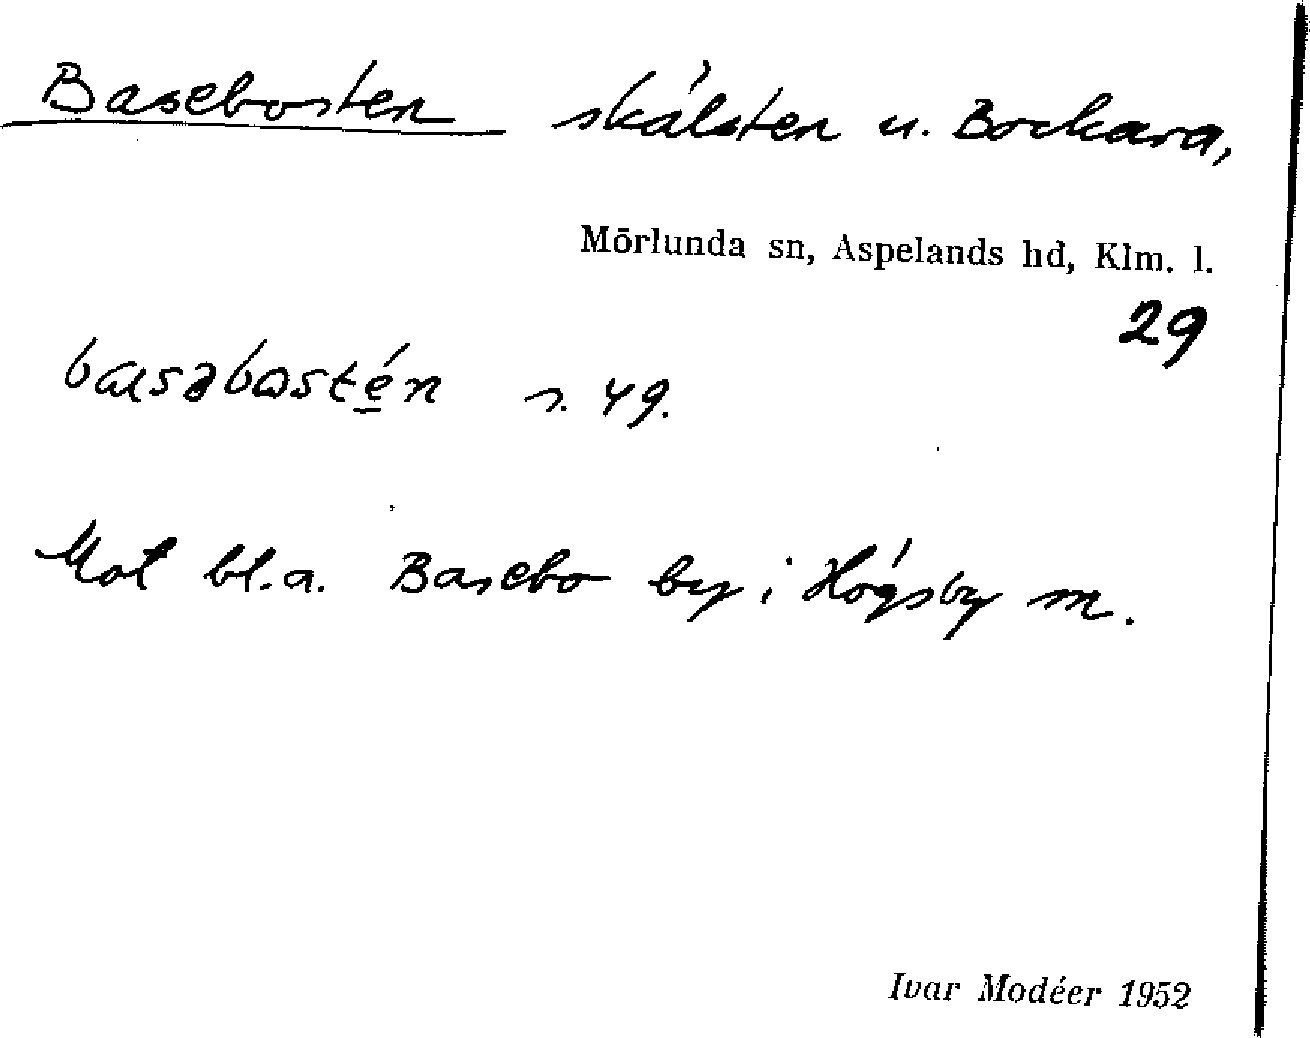 Basebosten skålsten u. Bockara,
Mörlunda sn, Aspelands hd, Klm. l.
29
s. 49.
Mot bl.a. Basebo by i Högsby sn.
Ivar Modéer 1952